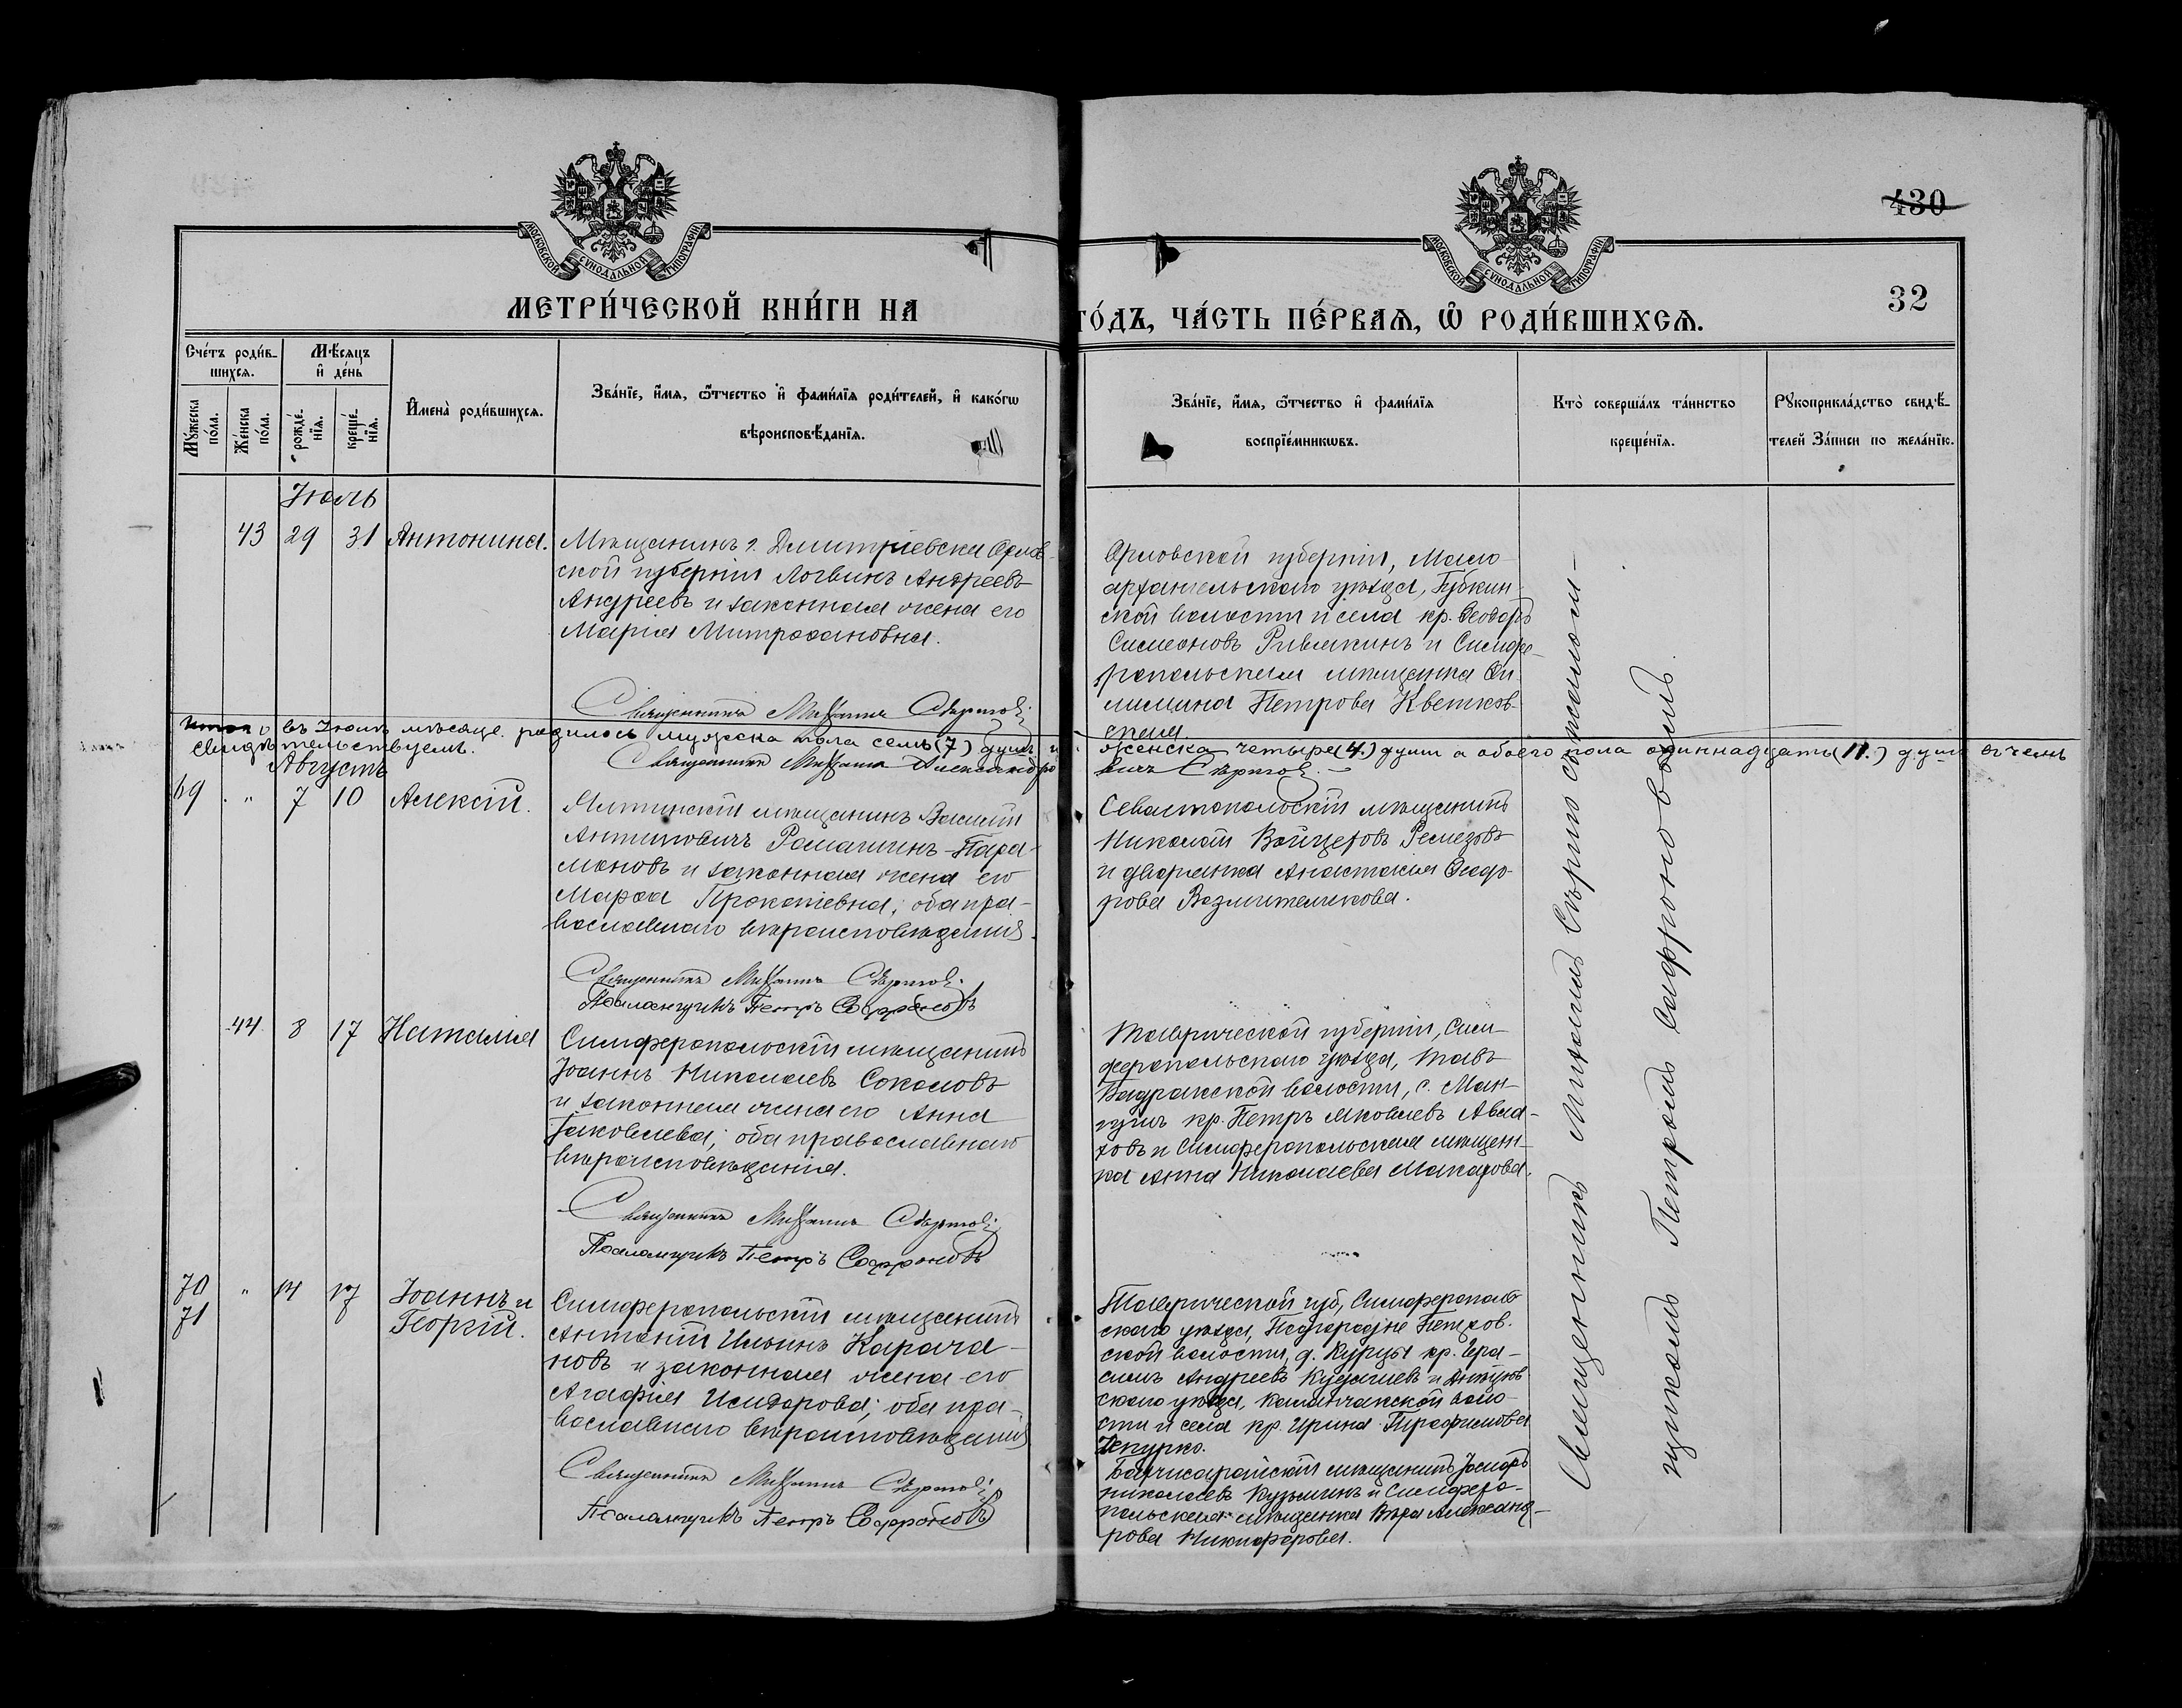 430
МОСКОВСКОЙ СѴНОДАЛЬНОЙ ТИПОГРАФІИ
МОСКОВСКОЙ СѴНОДАЛЬНОЙ ТИПОГРАФІИ
МЕТРИ́ЧЕСКОЙ КНИ́ГИ НА
ГО́ДЪ, ЧА́СТЬ ПЕ́РВАѦ, Ѡ҆ РОДИ́ВШИХСѦ.
32
Сче́тъ роди́в-
шихсѧ.
Мꙋ́жеска по́ла.
Же́нска по́ла.
Мѣ́сѧцъ
и҆ де́нь
рожде́нїѧ.
креще́нїѧ.
И҆мена̀ роди́вшихсѧ.
Зва́нїе, и҆́мѧ, ѻ҆́тчество и҆ фами́лїѧ роди́телей, и҆ како́гѡ
вѣроисповѣ́данїѧ.
Зва́нїе, и҆́мѧ, ѻ҆́тчество и҆ фами́лїѧ
воспрїе́мникѡвъ.
Кто̀ соверша́лъ та́инство
креще́нїѧ.
Рꙋкоприкла́дство свидѣ́-
телей за́писи по жела́нїю.
Іюль
43 29 31 Антонина.
Мѣщанинъ г. Дмитріевска Орлов-
ской губерніи Логвинъ Андреевъ
Андреевъ и законная жена его
Марія Митрофановна.
Священникъ Михаилъ
Орловской губерніи, Мало-
архангельскаго уѣзда, Губкин-
ской волости и села кр. Ѳеодоръ
Симеоновъ и Симфе-
ропольская мѣщанка
Петрова Квятков-
ская
въ Іюлѣ мѣсяцѣ родилось мужска пола семь (7) душъ и женска четыре (4.) души а обоего пола одиннадцать (11.) душъ въ чемъ
свидѣтельствуемъ.
Священникъ Михаилъ
Августъ
69 " 7 10 Алексій.
мѣщанинъ Василій
Антиповичъ Ромашинъ-Пара-
моновъ и законная жена его
Марѳа Прокопіевна; оба пра-
вославнаго вѣроисповѣданія.
Священникъ Михаилъ
Псаломщикъ Петръ Сафроновъ
Севастопольскій мѣщанинъ
Николай Ремезовъ
и дворянка Анастасія Ѳеодо-
рова
44 8 17 Наталія
Симферопольскій мѣщанинъ
Іоаннъ Николаевъ Соколовъ
и законная жена его Анна
Іаковлева; оба православнаго
вѣроисповѣданія.
Священникъ Михаилъ
Псаломщикъ Петръ Сафроновъ
Таврической губерніи, Сим-
феропольскаго уѣзда, Тавъ
Бадракской волости, с. Ман-
гушъ кр. Петръ Яковлевъ
и Симферопольская мѣщан-
ка Анна Николаева Макарова.
70 " 14 17 Іоаннъ и
71 Георгій.
Симферопольскій мѣщанинъ
Антоній Ильинъ Карача-
новъ и законная жена его
Агафія Исидорова; оба пра-
вославнаго вѣроисповѣданія
Священникъ Михаилъ
Псаломщикъ Петръ Сафроновъ
Таврической губ., Симферополь-
скаго уѣзда, Подгородне Петров-
ской волости, д. Курцы кр. Гера-
симъ Андреевъ и
скаго уѣзда, Каланчакской воло-
сти и села кр. Ирина Трофимова
Бахчисарайскій мѣщанинъ
Николаевъ Кузьминъ и Симферо-
польская мѣщанка Вѣра Александ-
рова Никифорова.
Священникъ Михаилъ съ псалом-
щикомъ Петромъ Сафроновымъ.